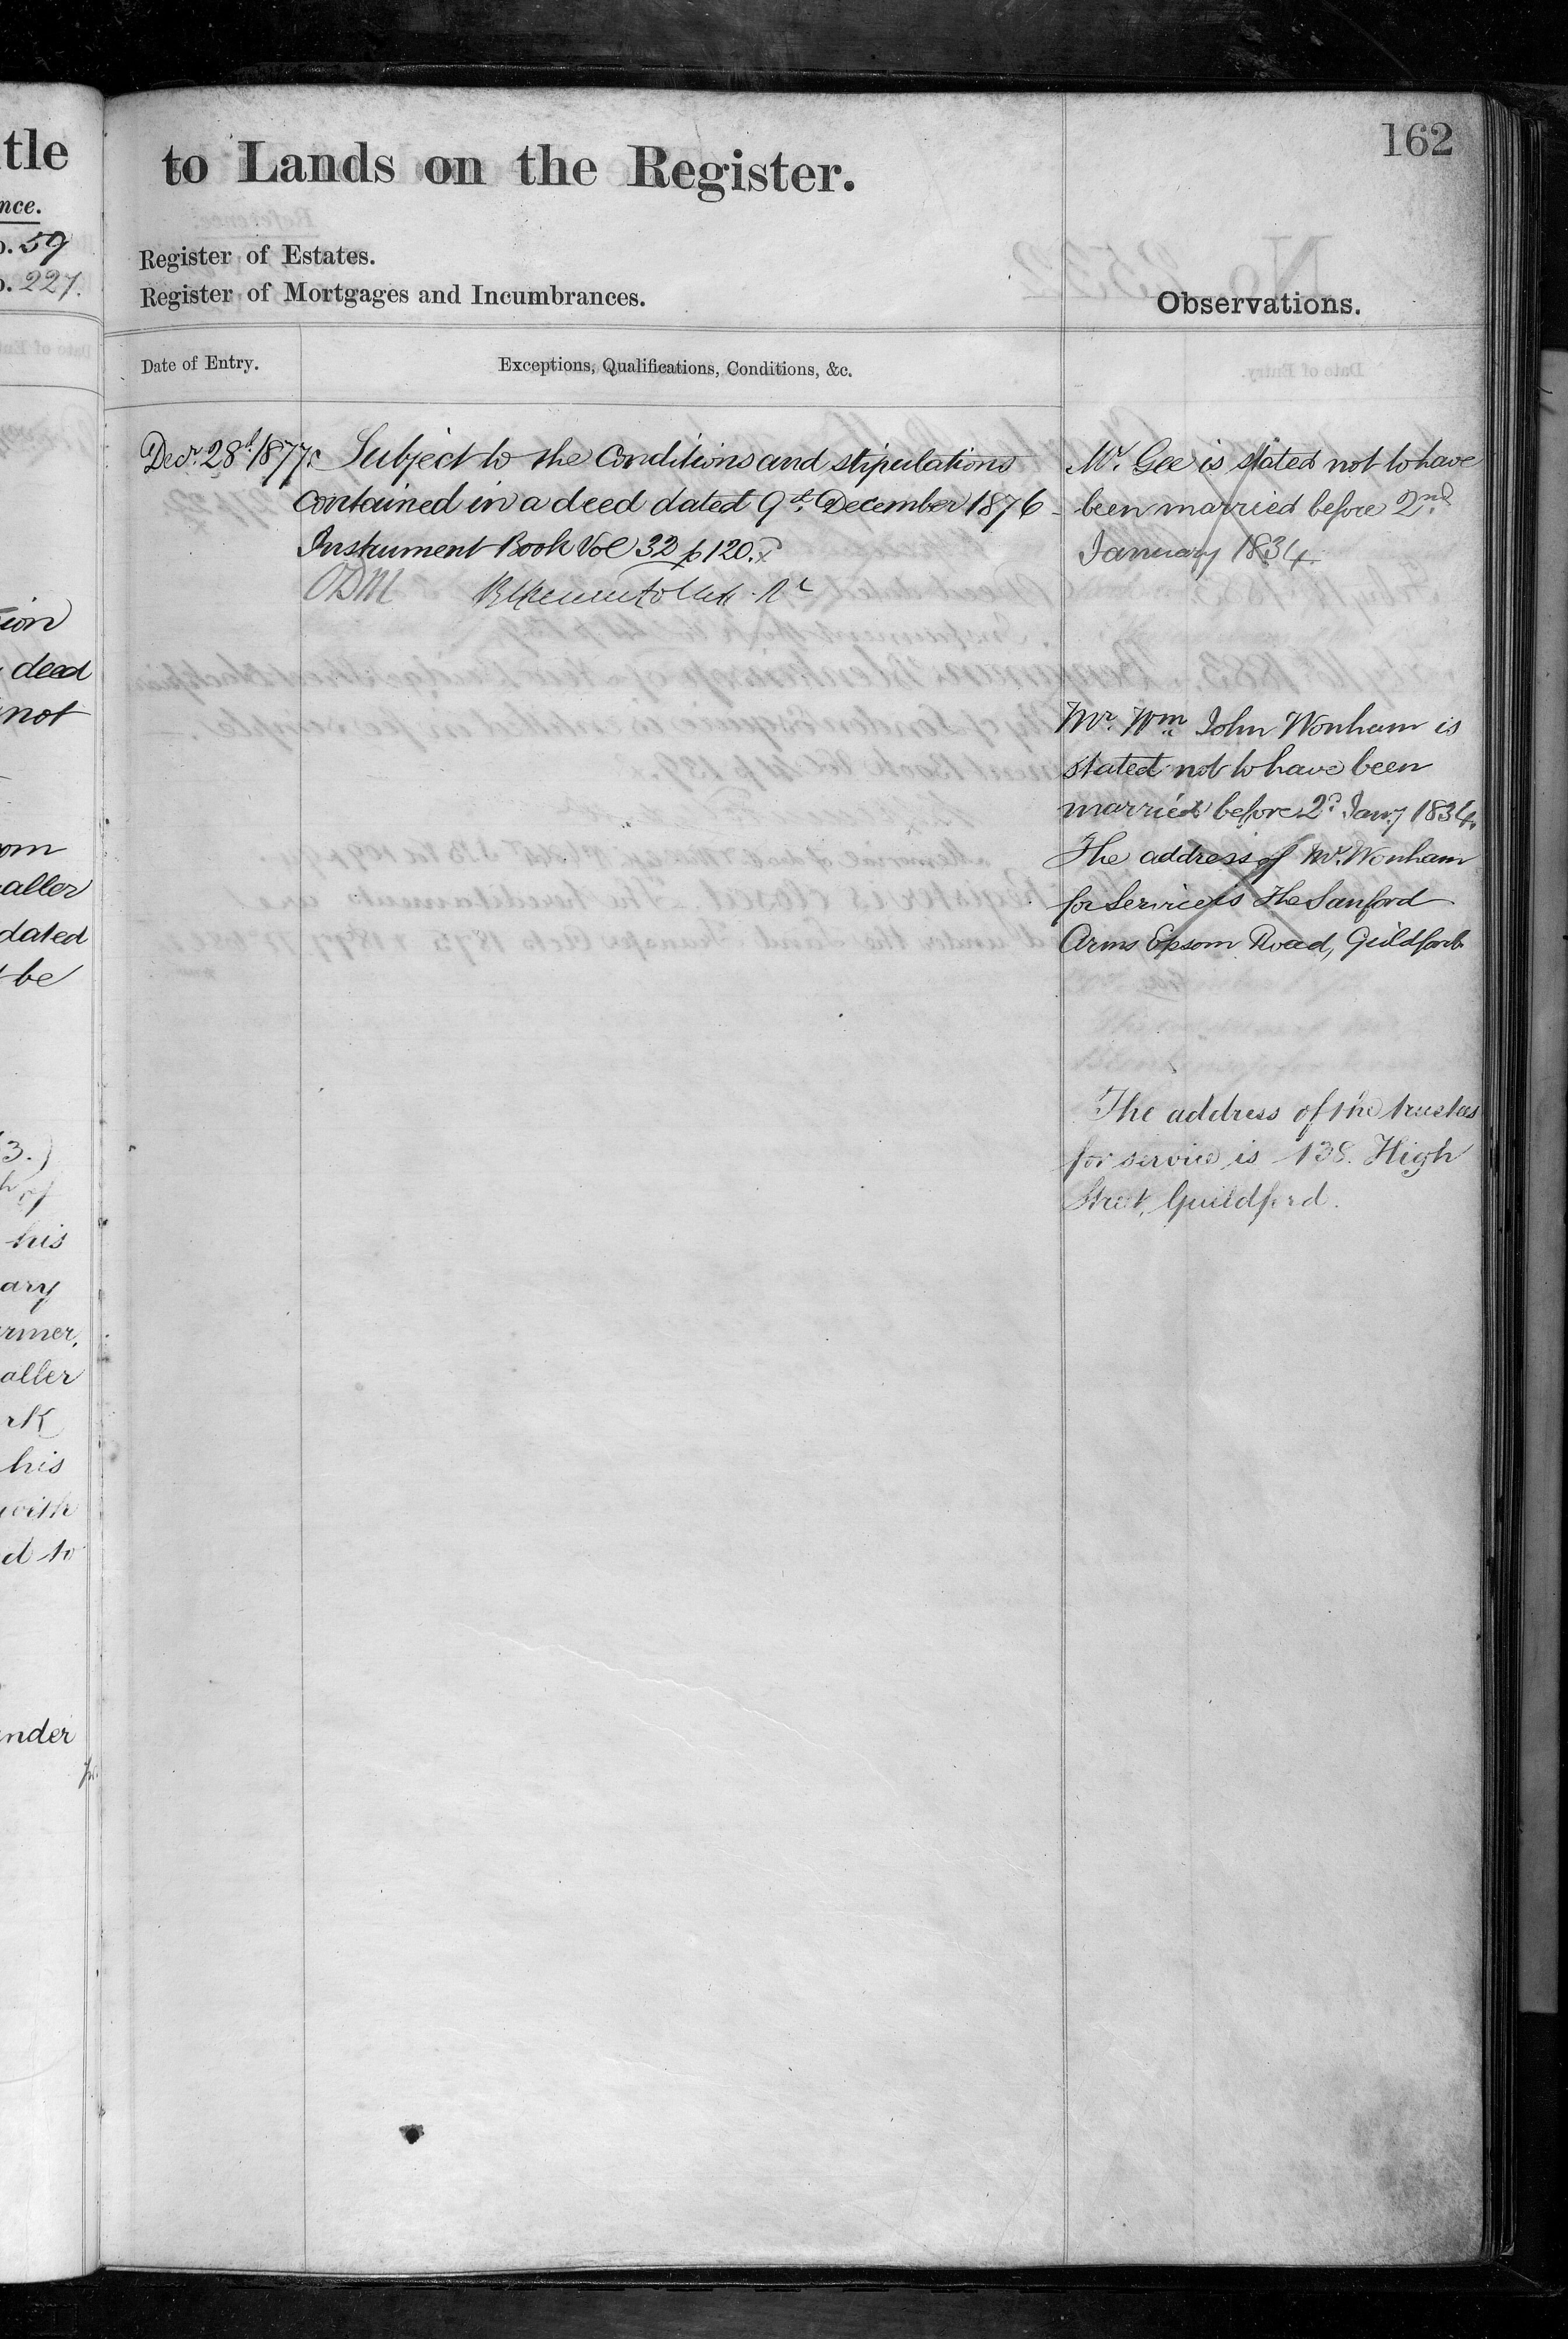 tle
nce.
o. 59
o. 227.
ion
deed
not
om
aller
dated
be
3.)
h of
his
ary
rmer,
aller
rk
his
with
d to
under
to Lands on the Register.
162
Register of Estates.
Register of Mortgages and Incumbrances.
Observations.
Date of Entry.
Exceptions, Qualifications, Conditions, &c.
Decr. 28th 1877
Subject to the Conditions and stipulations
contained in a deed dated 9th December 1876
Instrument Book Vol 32 p 120.
ODM
Mr. Gee is stated not to have
been married before 2nd
January 1834.
Mr. Wm John Wonham is
stated not to have been
married before 2d Jany 1834.
The address of Mr. Wonham
for Service is The Sanford
Arms Epsom Road, Guildford
The address of the trustees
for service is 138. High
Street, Guildford.